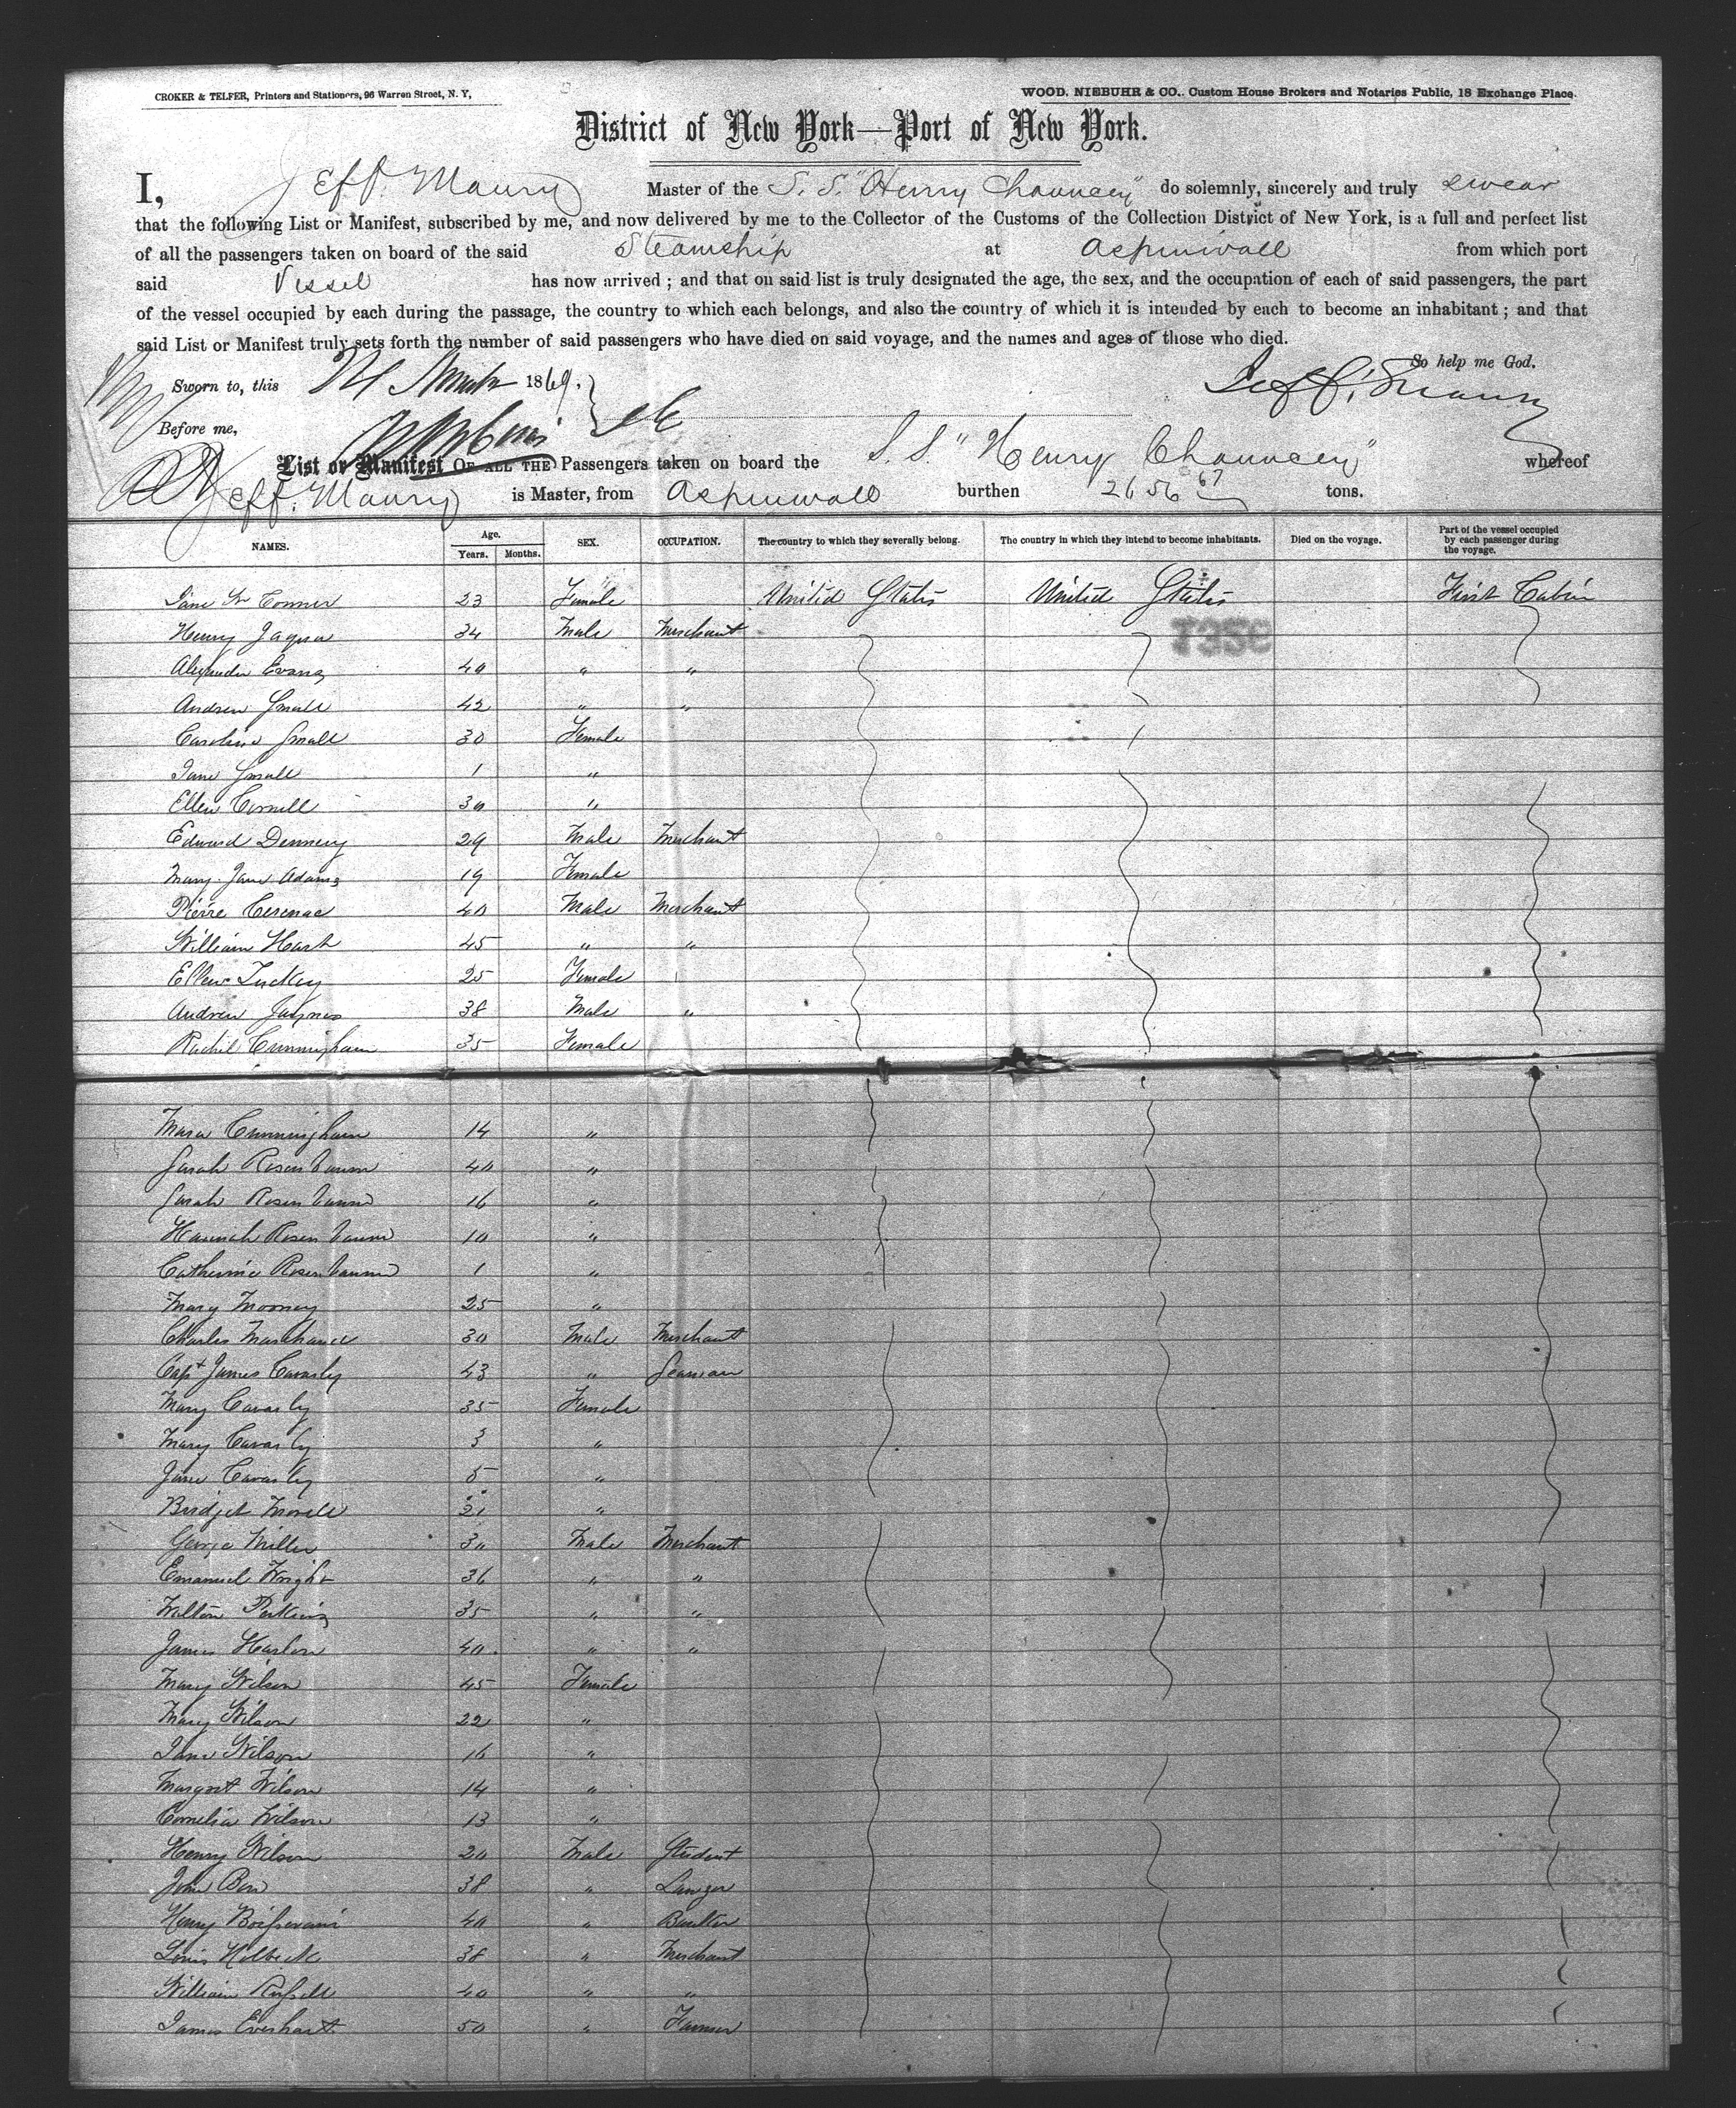 CROKER & TELFER, Printers and Stationers, 96 Warren Street, N. Y,
WOOD, NIEBUHR & CO., Custom House Brokers and Notaries Public, 18 Exchange Place.
District of New York—Port of New York.
I, Jeff. Maury Master of the S. S. "Henry Chauncey" do solemnly, sincerely and truly swear
that the following List or Manifest, subscribed by me, and now delivered by me to the Collector of the Customs of the Collection District of New York, is a full and perfect list
of all the passengers taken on board of the said Steamship at Aspinwall from which port
said Vessel has now arrived ; and that on said list is truly designated the age, the sex, and the occupation of each of said passengers, the part
of the vessel occupied by each during the passage, the country to which each belongs, and also the country of which it is intended by each to become an inhabitant ; and that
said List or Manifest truly sets forth the number of said passengers who have died on said voyage, and the names and ages of those who died.
So help me God.
Sworn to, this 1869. Jeff. Maury
Before me,
List or Manifest OF ALL THE Passengers taken on board the S. S. "Henry Chauncey" whereof
Jeff. Maury is Master, from Aspinwall burthen 2656 67 tons.
NAMES. Age. Years. Months. SEX. OCCUPATION. The country to which they severally belong. The country in which they intend to become inhabitants. Died on the voyage. Part of the vessel occupied by each passenger during the voyage.
Jane Connor 23 Female United States United States First Cabin
Henry Jaques 34 Male Merchant
Alexander Evans 40 " "
Andrew Small 42 " "
Caroline Small 30 Female
Jane Small 1 "
Ellen Cornell 30 "
Edward Dennery 29 Male Merchant
Mary Jane Adams 19 Female
Pierre Cerenac 40 Male Merchant
William Hart 45 " "
Ellen Tuckey 25 Female
Andrew Jaynes 38 Male "
Rachel Cunningham 35 Female
Mara Cunningham 14 "
Sarah Rosenbaum 40 "
Sarah Rosenbaum 16 "
Hannah Rosenbaum 10 "
Catherine Rosenbaum 1 "
Mary Mooney 25 "
Charles Marchand 30 Male Merchant
Capt James Cavarly 43 " Seaman
Mary Cavarly 35 Female
Mary Cavarly 3 "
Jane Cavarly 5 "
Bridget Morell 21 "
George Miller 30 Male Merchant
Emanuel Wright 36 " "
Walton Perkins 35 " "
James Harlon 40 " "
Mary Wilson 45 Female
Mary Wilson 22 "
Jane Wilson 16 "
Margret Wilson 14 "
Cornelia Wilson 13 "
Henry Wilson 20 Male Student
John 38 " Lawyer
Henry Boissevain 40 " Banker
Louis Holbeck 38 " Merchant
William Russell 40 " "
James Everhart 50 " Farmer